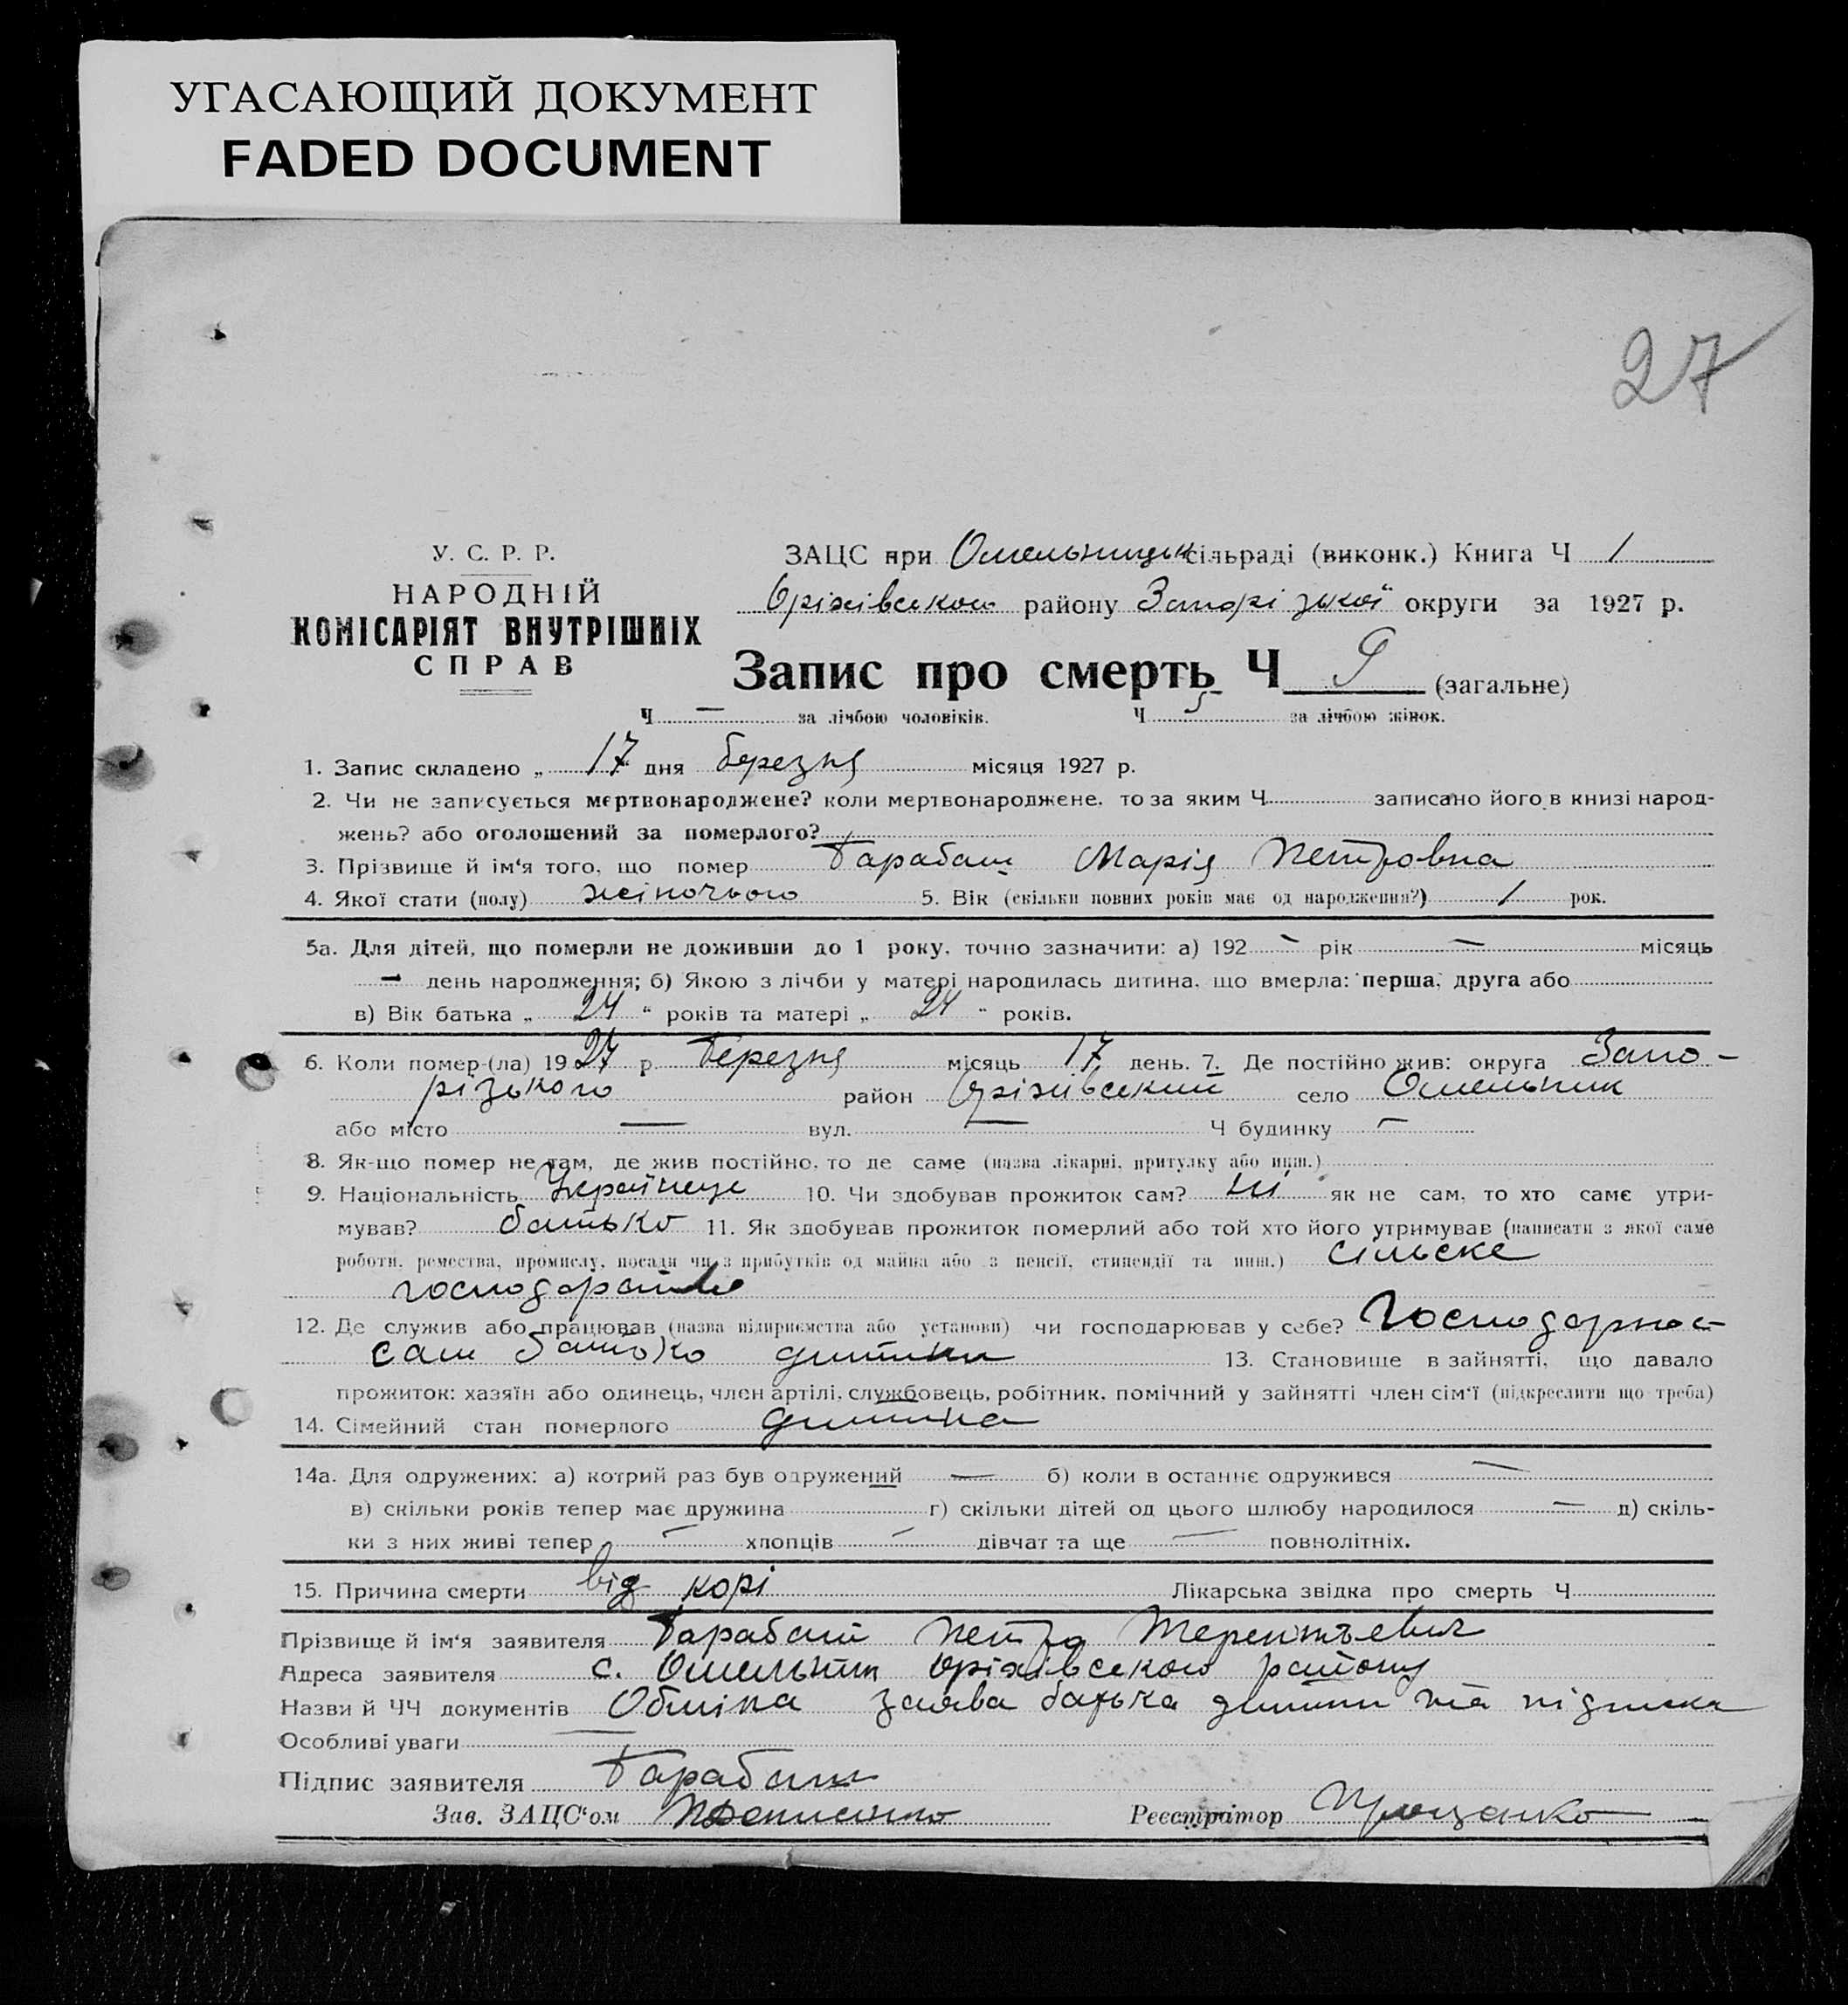 УГАСАЮЩИЙ ДОКУМЕНТ
FADED DOCUMENT
27
У. С. Р. Р.
НАРОДНІЙ
КОМІСАРІЯТ ВНУТРІШНІХ
СПРАВ
ЗАЦС при Омельницьк сільраді (виконк.) Книга Ч 1
Оріхівського району Запорізької округи за 1927 р.
Запис про смерть Ч 9 (загальне)
Ч — за лічбою чоловіків. Ч 5 за лічбою жінок.
1. Запис складено „ 17 " дня березня місяця 1927 р.
2. Чи не записується мертвонароджене? коли мертвонароджене, то за яким Ч записано його в книзі народ-
жень? або оголошений за померлого?
3. Прізвище й ім'я того, що помер Барабаш Марія Петровна
4. Якої стати (полу) жіночього 5. Вік (скільки повних років має од народження?) 1 рок.
5а. Для дітей, що померли не доживши до 1 року, точно зазначити: а) 192 — рік — місяць
— день народження; б) Якою з лічби у матері народилась дитина, що вмерла: перша, друга або
в) Вік батька „ 24 " років та матері „ 24 " років.
6. Коли помер-(ла) 1927 р. Березня місяць 17 день. 7. Де постійно жив: округа Запо-
різького район Оріхівський село Омельник
або місто — вул. — Ч будинку —
8. Як-що помер не там, де жив постійно, то де саме (назва лікарні, притулку або инш.)
9. Національність Українець 10. Чи здобував прожиток сам? ні як не сам, то хто саме утри-
мував? батько 11. Як здобував прожиток померлий або той хто його утримував (написати з якої саме
роботи, ремества, промислу, посади чи з прибутків од майна або з пенсії, стипендії та инш.) сільске
господарство
12. Де служив або працював (назва підприємства або установи) чи господарював у себе?
сам батько дитини 13. Становище в зайнятті, що давало
прожиток: хазяїн або одинець, член артілі, службовець, робітник, помічний у зайнятті член сім'ї (підкреслити що треба)
14. Сімейний стан померлого дитина
14а. Для одружених: а) котрий раз був одружений — б) коли в останнє одружився —
в) скільки років тепер має дружина г) скільки дітей од цього шлюбу народилося — д) скіль-
ки з них живі тепер — хлопців — дівчат та ще — повнолітніх.
15. Причина смерти від корі Лікарська звідка про смерть Ч
Прізвище й ім'я заявителя Барабаш Петро Терентьевич
Адреса заявителя с. Омельник Оріхівського району
Назви й ЧЧ документів заява батька дитини та підписка
Особливі уваги —
Підпис заявителя Барабаш
Зав. ЗАЦС'ом
Реєстратор Проценко